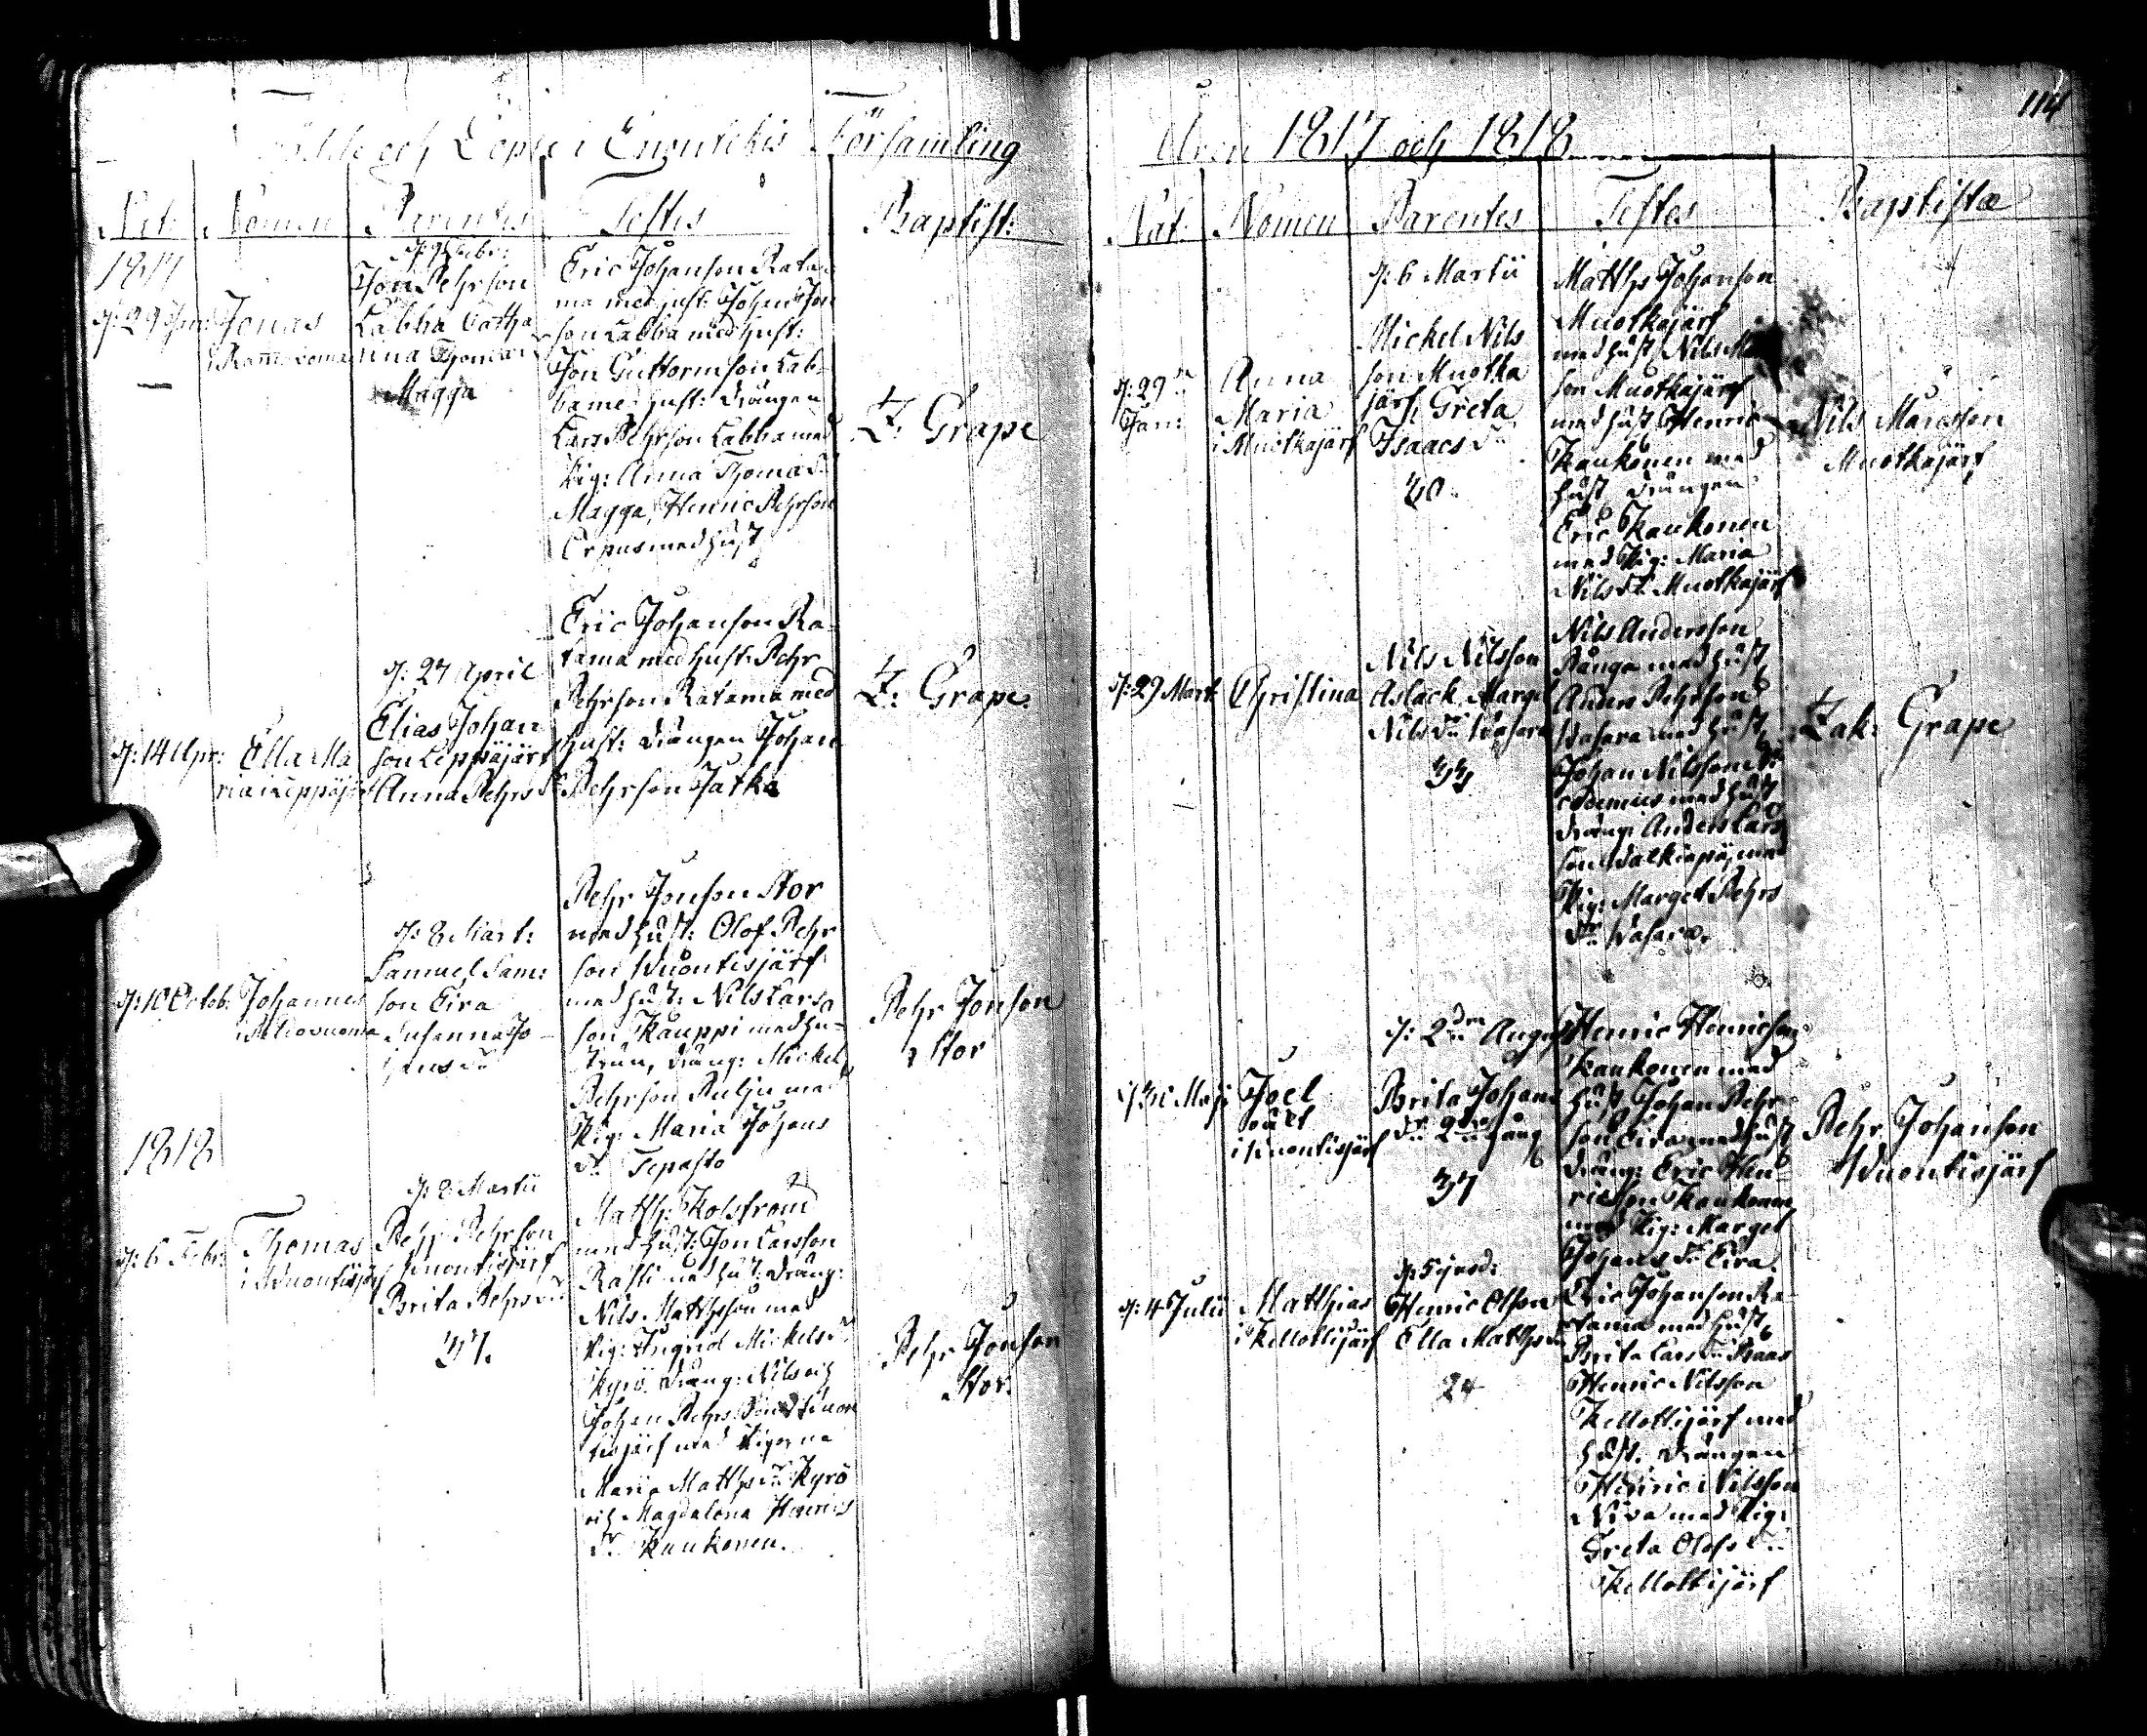 Födde och Döpte i Enontekis Församling
Nat: Nomen Parentes Testes Baptist:
1817
d: 9 Febr:
d: 29 Jan: Jonas
Jon Pehrson
Labba Catha
rina Thomæ
Magga
Eric Johanson Rata
ma med hust: Johan Jon
son Labba med hust:
Jon Guttormson Lab-
ba med hust: drängen
Lars Pehrson Labba med
Pig: Anna Thomæ Dr
Magga, Henric Pehrson
med hust
Z. Grape
d: 14 Apr: Ella Ma
ria i Leppäjärf
d: 27 April
Elias Johan
son Leppäjärf
Anna Pehrs Dr
Eric Johanson Ra-
tama med hust: Pehr
Pehrson Ratama med
hust: drängen Johan
Pehrson Jatka
Z. Grape
d: 10 Octob: Johannes
d: 8 Mart:
Samuel Sam:
son Eira
Susanna Jo-
hans Dr
Pehr Jonson Stor
med hust: Olof Pehr
son Wuontisjärf
med hust: Nils Lars
son Kauppi med hu-
strun, dräng: Mickel
Pehrson Rulju med
Pig: Maria Johans
Dr Tepasto
Pehr Jonson
Stor
1818
d: 6 Febr: Thomas
i Wuontisjärf
d: 8 Martii
Pehr Pehrson
Wuontisjärf
Brita Pehrs Dr
37.
Matth: Kolström
med hust: Jon Larsson
Rasti med hust: dräng:
Nils Matthsson med
Pig: Ingrid Mickels Dr
Kyrö dräng: Nils och
Johan Pehrs Söner Wuon
tisjärf med Pigorna
Maria Matths Dr Kyrö
och Magdalena Henrics
Dr Kaukonen.
Pehr Jonson
Stor.
114
Åren 1817 och 1818
Nat: Nomen Parentes Testes Baptistæ
d: 29de
Jan:
Anna
Maria
i Muotkajärf
d: 6 Martii
Mickel Nils
son Muotka
järf, Greta
Isaacs Dr
30
Matths Johanson
Muotkajärf
med hust, Nils
son Muotkajärf
med hust Henric
Kaukonen med
hust drängen
Eric Kaukonen
med Pig: Maria
Nils Dr Muotkajärf
Nils Marcsson
Muotkajärf
d: 29 Mart: Christina
Nils Nilsson
Aslack Marget
Nils Dr Wasara
33
Nils Andersson
Pånga med hust,
Anders Pehrson
Wasara med hust,
Johan Nilsson
med hust
dräng: Anders Lars
son Walkiapä, med
Pig: Marget Pehrs
Dr Wasara.
Zak: Grape
d: 31 Maji Joel
oäkt
i Wuontisjärf
d: 2dra Aug:
Brita Johans
Dr 2dra gång
37
Henric Henricson
Kaukonen med
hust, Johan Pehr
son Eira med hust
dräng: Eric Hen-
ricsson Kaukonen
med Pig: Marget
Johans Dr Eira.
Pehr Johanson
Wuontisjärf
d: 4 Julii Matthias
i Kellottijärf
d: 5 ejusd:
Henric Olsson
Ella Matths Dr
24
Eric Johanson Ra-
tama med hust,
Brita Lars Dr
Henric Nilsson
Kellottijärf med
hust. drängen
Henric Nilsson
Niva med Pig:
Greta Olofs Dr
Kellottijärf